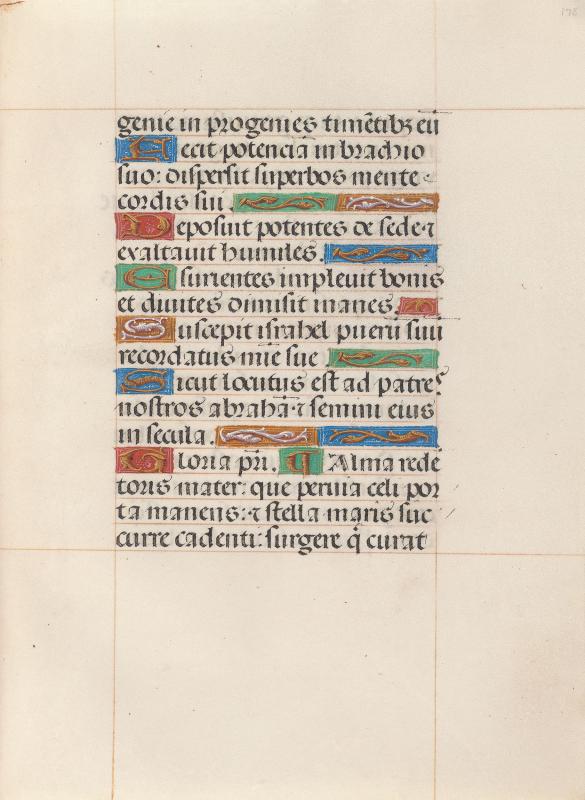 178
genie in progenies timētibꝫ eū
Fecit potenciā in brachio
suo: dispersit superbos mente
cordis sui.
Deposuit potentes de sede ⁊
exaltauit humiles.
Esurientes impleuit bonis
et diuites dimisit inanes.
Suscepit israhel puerū suū
recordatus mīe sue
Sicut locutus est ad patres
nostros abrahā ⁊ semini eius
in secula.
Gloria pr̄i. Alma rede
toris mater: que peruia celi por
ta manens: ⁊ stella maris suc
curre cadenti: surgere q̇ curat